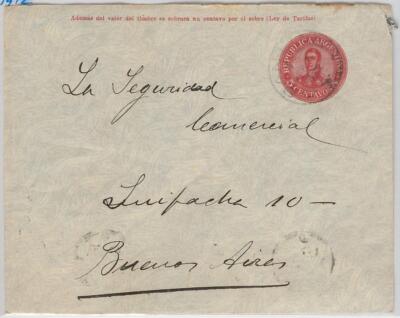 1912
Además del valor del timbre se cobrará un centavo por el sobre (Ley de Tarifas)
REPUBLICA ARGENTINA
5 CENTAVOS
La Seguridad
Comercial
Suipacha 10 —
Buenos Aires